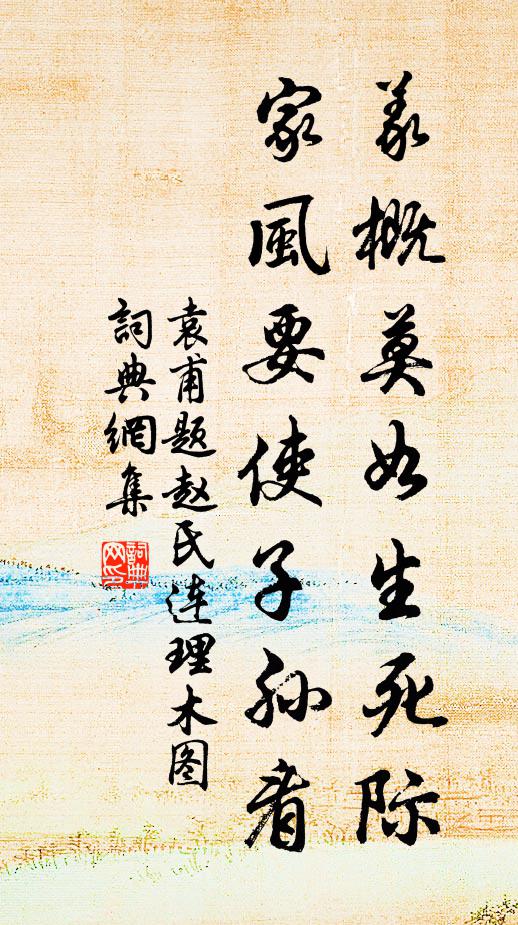 義概莫如生死际
家風要使子孙看
袁甫题赵氏连理木图
詞典網集
詞典网印